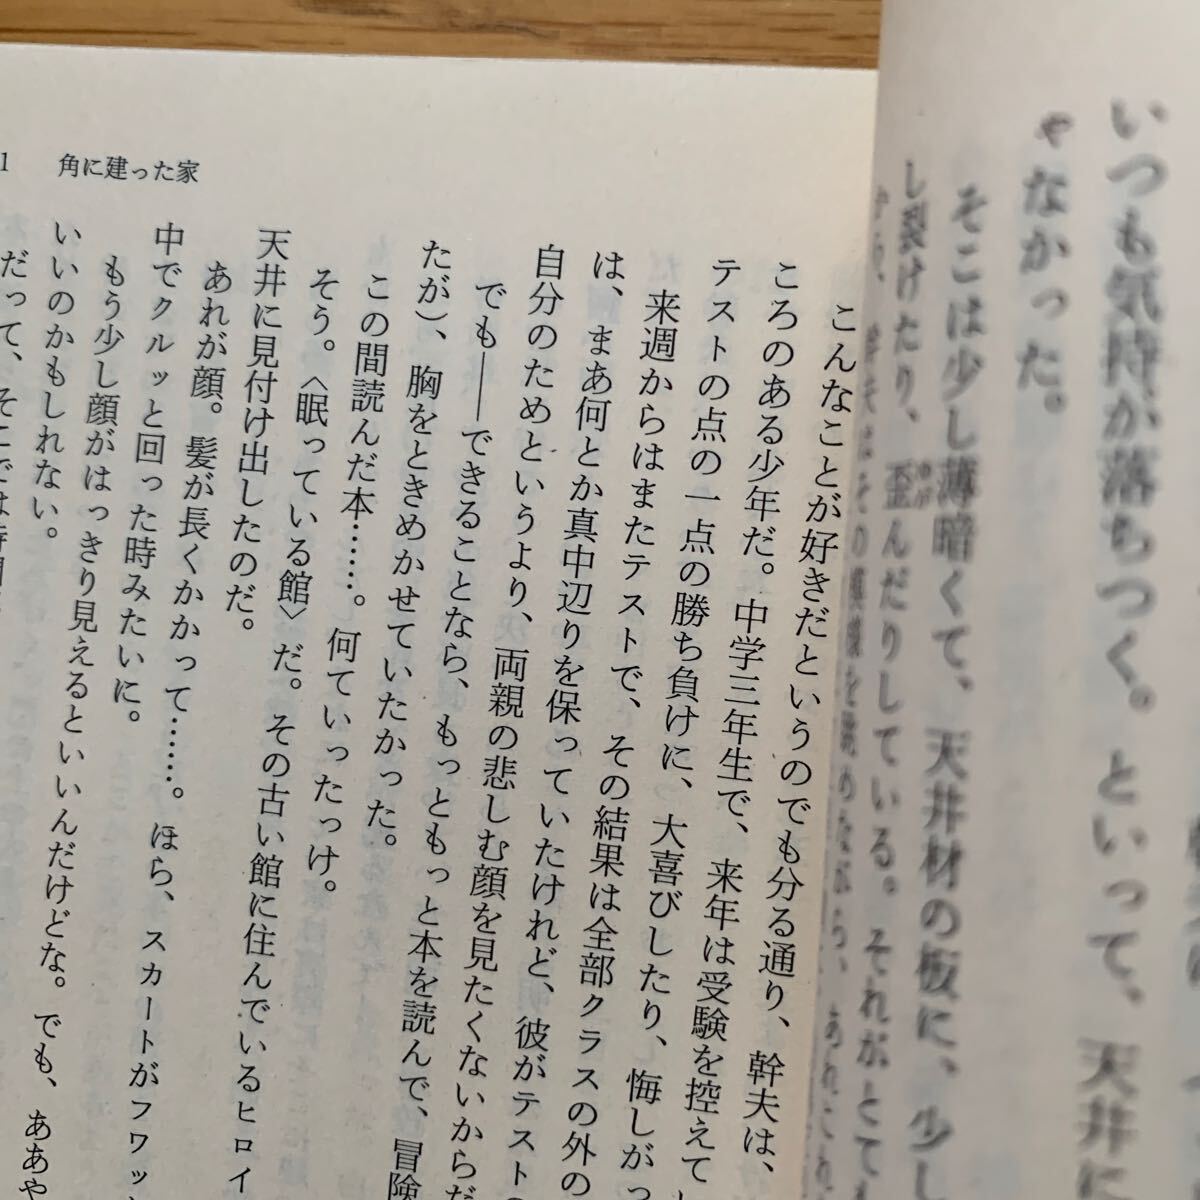 いつも気持が落ちつく。といって、天井に
ゃなかった。
そこは少し薄暗くて、天井材の板に、少し
し裂けたり、歪んだりしている。それがとても
1 角に建った家
こんなことが好きだというのでも分る通り、幹夫は、
ころのある少年だ。中学三年生で、来年は受験を控えて
テストの点の一点の勝ち負けに、大喜びしたり、悔しがっ
来週からはまたテストで、その結果は全部クラスの外の
は、まあ何とか真中辺りを保っていたけれど、彼がテストの
自分のためというより、両親の悲しむ顔を見たくないからだ
でも――できることなら、もっともっと本を読んで、冒険
たが)、胸をときめかせていたかった。
この間読んだ本……。何ていったっけ。
そう。〈眠っている館〉だ。その古い館に住んでいるヒロイ
天井に見付け出したのだ。
あれが顔。髪が長くかかって……。ほら、スカートがフワッ
中でクルッと回った時みたいに。
もう少し顔がはっきり見えるといいんだけどな。でも、ああや
いいのかもしれない。
だって、そこでは時間